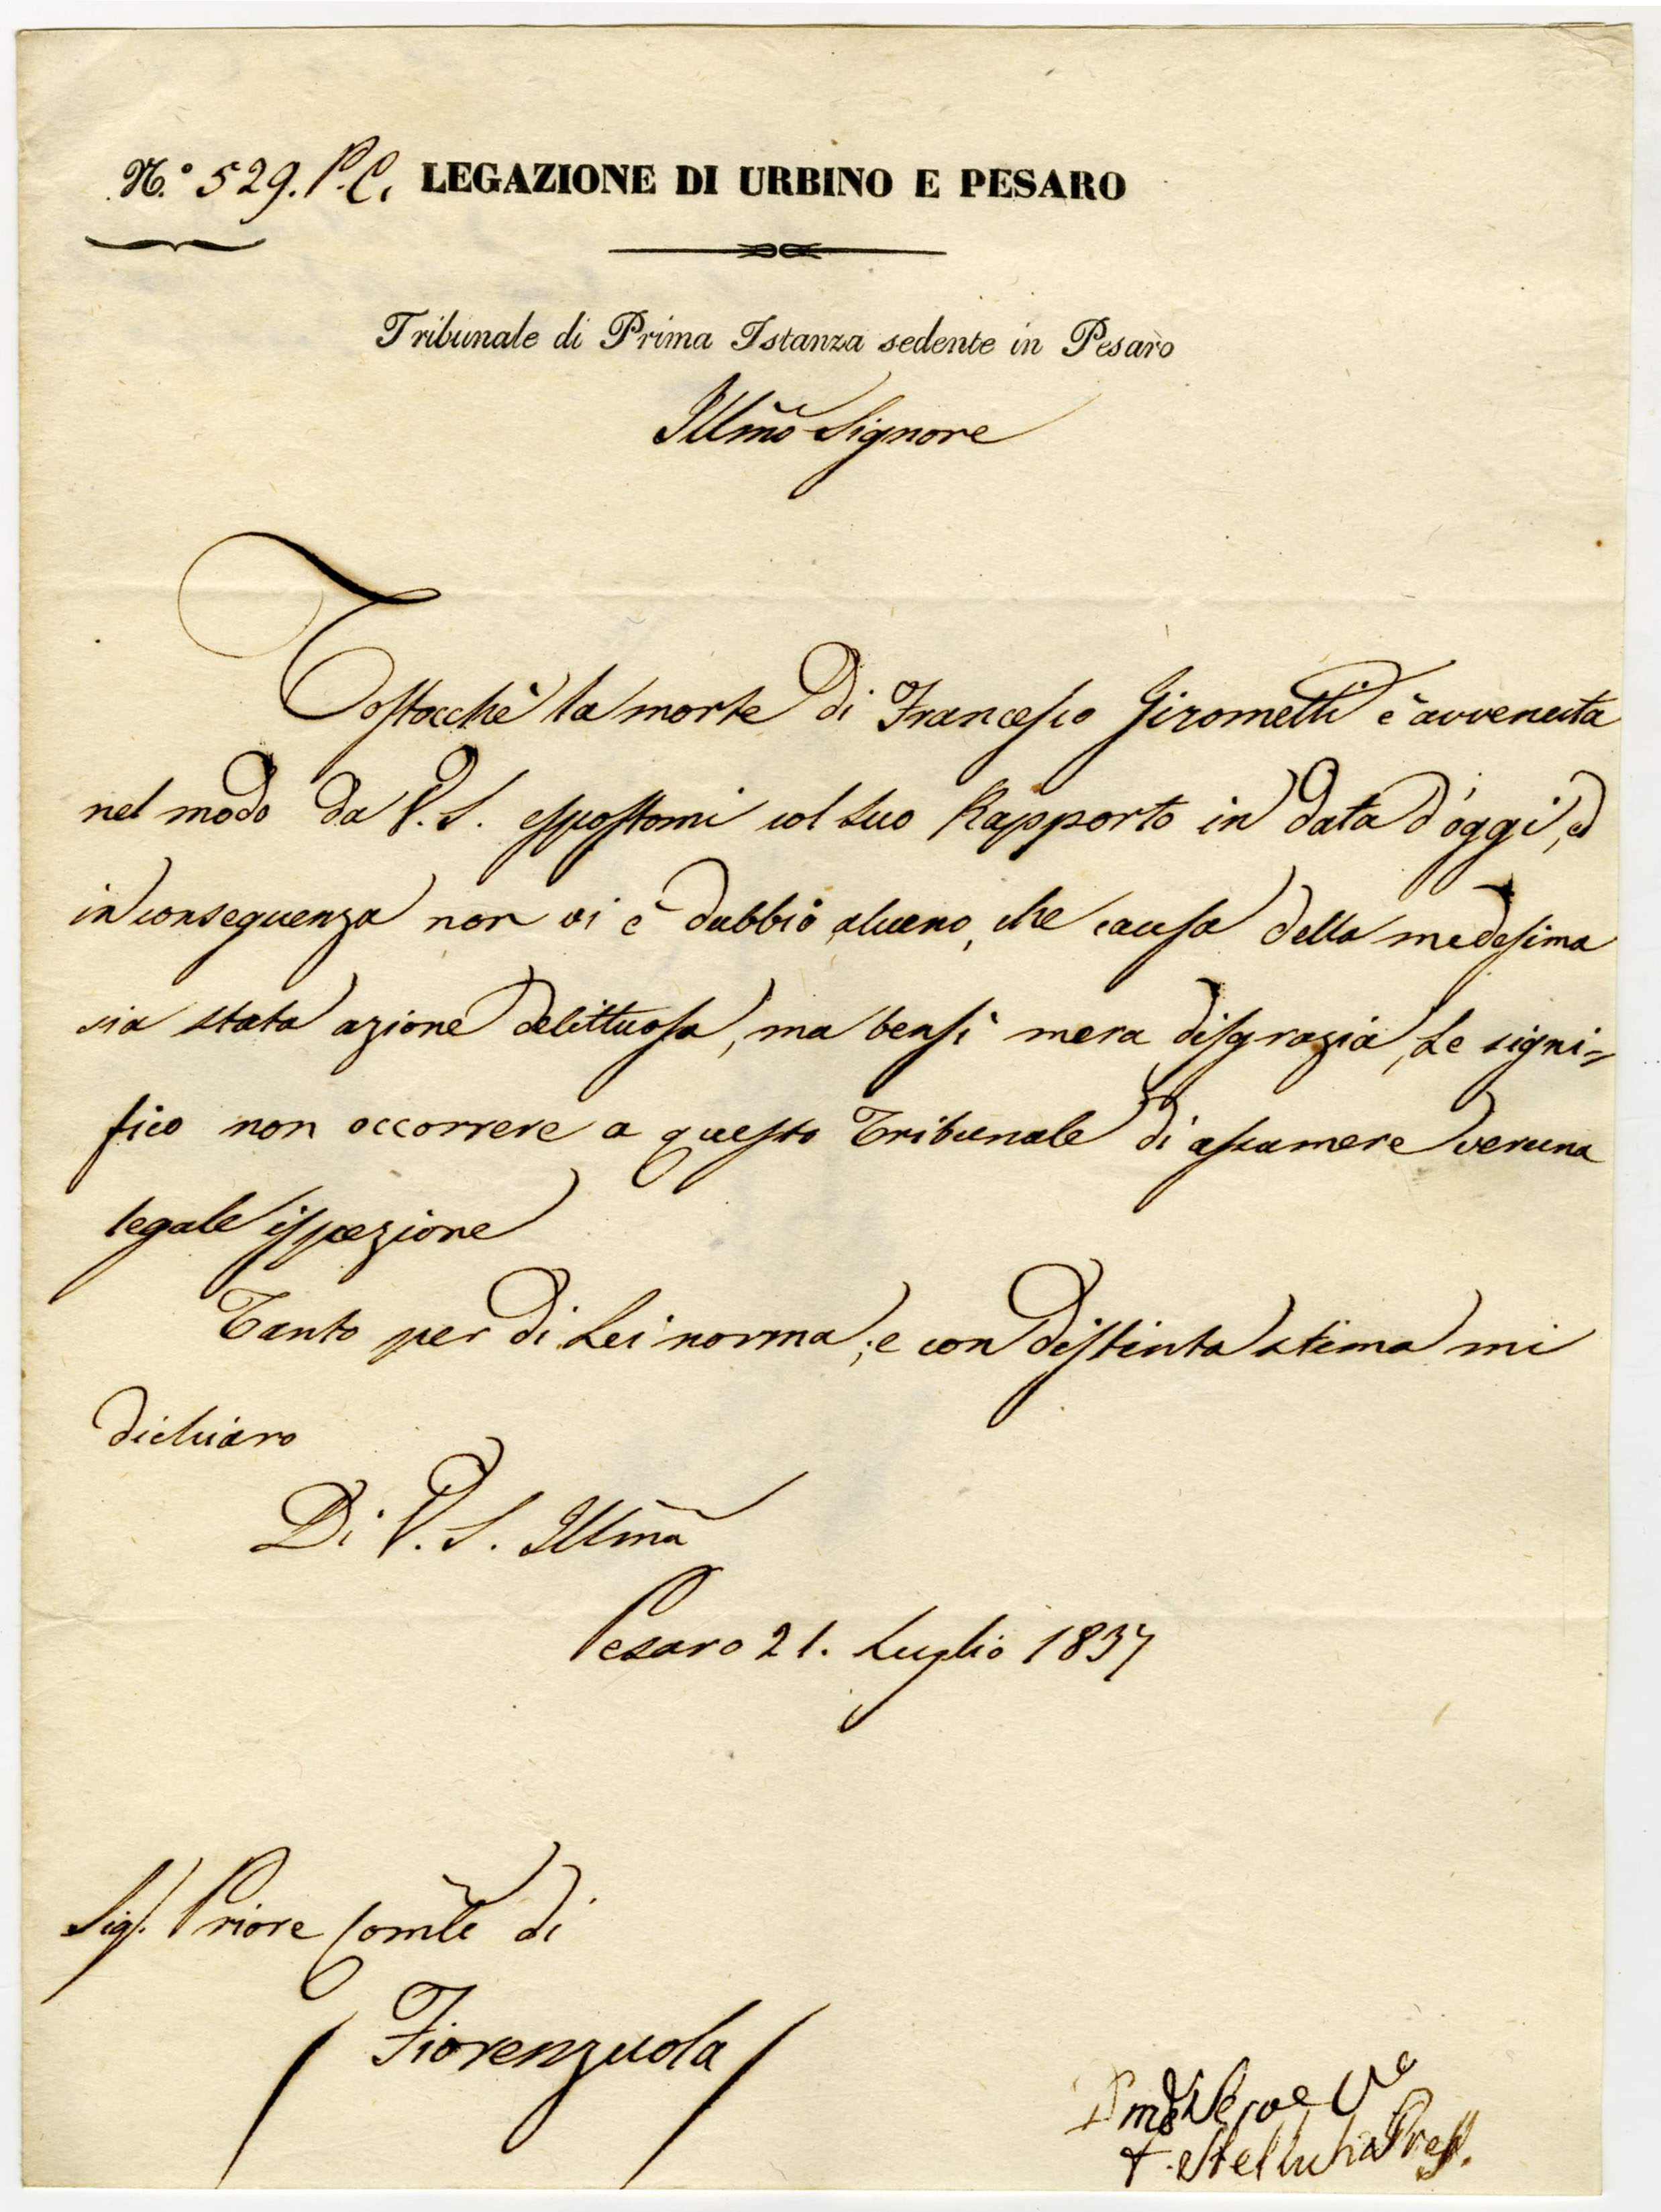 N.° 529. P. C. LEGAZIONE DI URBINO E PESARO
Tribunale di Prima Istanza sedente in Pesaro
Illm̃o Signore
Tostocchè la morte di Francesco Girometti è avvenuta
nel modo da V. S. espostomi col suo Rapporto in data d'oggi, ed
in conseguenza non vi è dubbio alcuno, che causa della medesima
sia stata azione delittuosa, ma bensì mera disgrazia, Le signi=
fico non occorrere a questo Tribunale di assumere veruna
legale ispezione
Tanto per di Lei norma, e con distinta stima mi
dichiaro
Di V. S. Illm̃a
Pesaro 21. Luglio 1837
Sig. Priore Com̃le di
Fiorenzuola
F. Stelluti Pres.